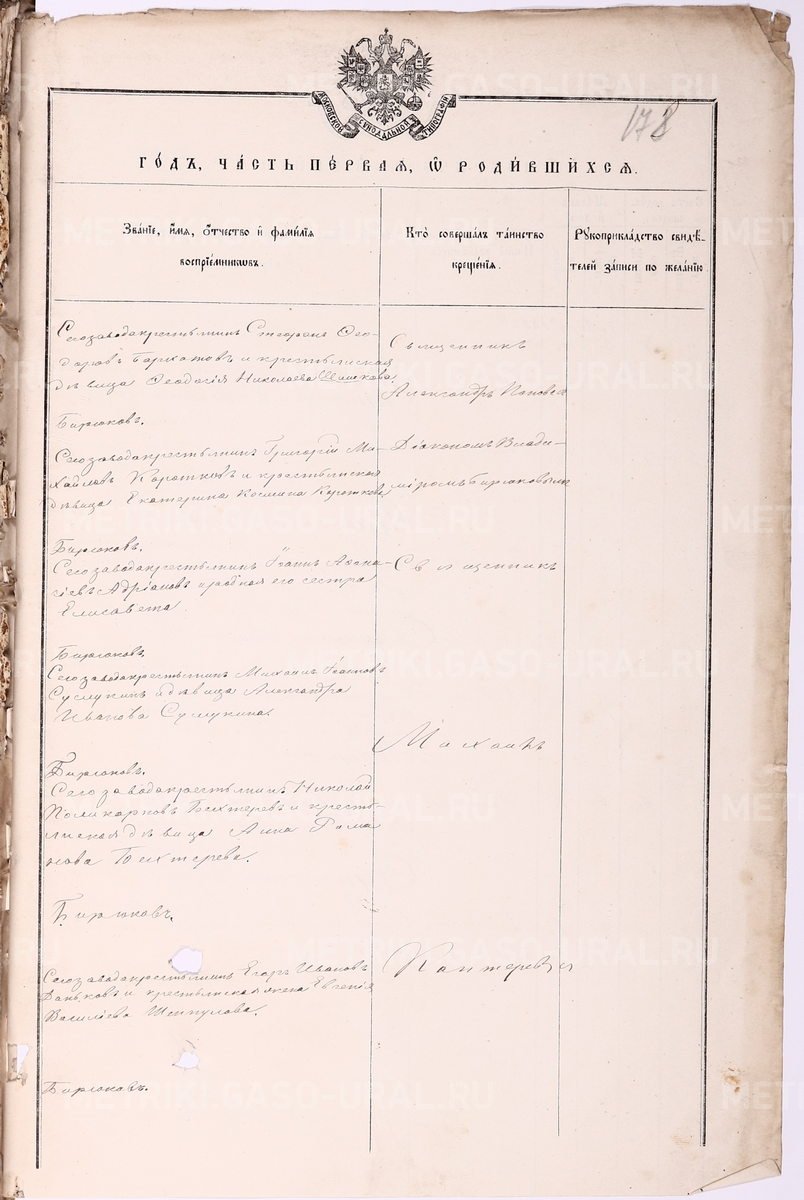 МОСКОВСКОЙ СѴНОДАЛЬНОЙ ТИПОГРАФІИ
178
ГО́ДЪ, ЧА́СТЬ ПЕ́РВАЯ, Ѽ РОДИ́ВШИХСЯ.
Зва́ніе, и҆́мя, ѻ҆́тчество и҆ фами́лїя
воспрїе́мникѡвъ.
Кто̀ соверша́лъ та́инство
креще́нїѧ.
Рꙋкоприкла́дство свидѣ́-
телей за́писи по жела́нїю
Сегозаводакрестьянинъ Стефанъ Ѳео-
доровъ Бархатовъ и крестьянская
дѣвица Ѳеодосія Николаева Шишкова
Священникъ
Александръ Поповъ и
Бирюковъ.
Сегозаводакрестьянинъ Григорій Ми-
хайловъ Коротковъ и крестьянская
дѣвица Екатерина Космина Короткова
Діакономъ Влади-
міромъ Бирюковымъ
Бирюковъ.
Сегозаводакрестьянинъ Іоаннъ Аѳана-
сіевъ Адріановъ и родная его сестра
Елисавета.
Священникъ
Бирюковъ.
Сегозаводакрестьянинъ Михаилъ Іоанновъ
Суслукинъ и дѣвица Александра
Иванова Суслукина.
Михаилъ
Бирюковъ.
Сегозаводакрестьянинъ Николай
Поликарповъ Бехтеревъ и кресть-
янская дѣвица Анна Рома
нова Бехтерева.
Бирюковъ.
Сегозаводакрестьянинъ Егоръ Ивановъ
Даньковъ и крестьянская жена Евгенія
Василіева Шепулова.
Кантеревъ и
Бирюковъ.
METRIKI.GASO-URAL.RU